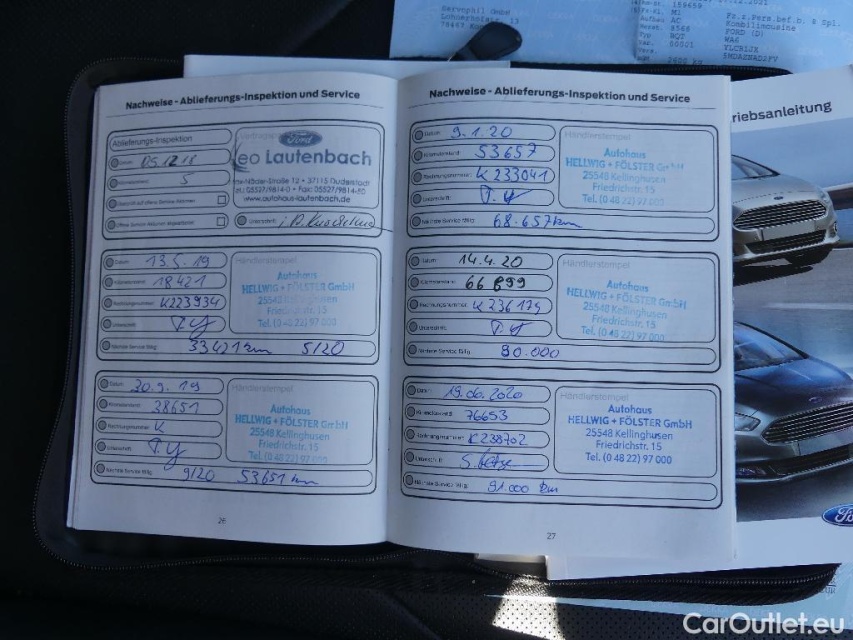 Servophil GmbH
Nachweise - Ablieferungs-Inspektion und Service
Ablieferungs-Inspektion
Datum 05.12.18
5
Unterschrift
Ford
Leo Lautenbach
37115 Duderstadt
Tel.: 05527/9814-0 • Fax: 05527/9814-50
www.autohaus-lautenbach.de
Datum 13.5.19
18421
Rechnungsnummer K223934
Unterschrift
Nächste Service fällig 33421 km 5/20
Händlerstempel
Autohaus
HELLWIG + FÖLSTER GmbH
25548 Kellinghusen
Friedrichstr. 15
Tel. (0 48 22) 97 000
Datum 20.9.19
38651
Rechnungsnummer K
Unterschrift
Nächste Service fällig 9/20 53651 km
Händlerstempel
Autohaus
HELLWIG + FÖLSTER GmbH
25548 Kellinghusen
Friedrichstr. 15
Tel. (0 48 22) 97 000
26
Nachweise - Ablieferungs-Inspektion und Service
Datum 9.1.20
Kilometerstand 53657
Rechnungsnummer K233041
Unterschrift
Nächste Service fällig 68.657 km
Händlerstempel
Autohaus
HELLWIG + FÖLSTER GmbH
25548 Kellinghusen
Friedrichstr. 15
Tel. (0 48 22) 97 000
Datum 14.4.20
Kilometerstand 66899
Rechnungsnummer K236175
Unterschrift
Nächste Service fällig 80.000
Händlerstempel
Autohaus
HELLWIG + FÖLSTER GmbH
25548 Kellinghusen
Friedrichstr. 15
Tel. (0 48 22) 97 000
Datum 19.06.2020
Kilometerstand 76653
Rechnungsnummer K238702
Unterschrift
Nächste Service fällig 91.000 km
Händlerstempel
Autohaus
HELLWIG + FÖLSTER GmbH
25548 Kellinghusen
Friedrichstr. 15
Tel. (0 48 22) 97 000
27
Fz.z.Pers.bef.b. 8 Spl.
Kombilimousine
FORD (D)
WA6
riebsanleitung
CarOutlet.eu